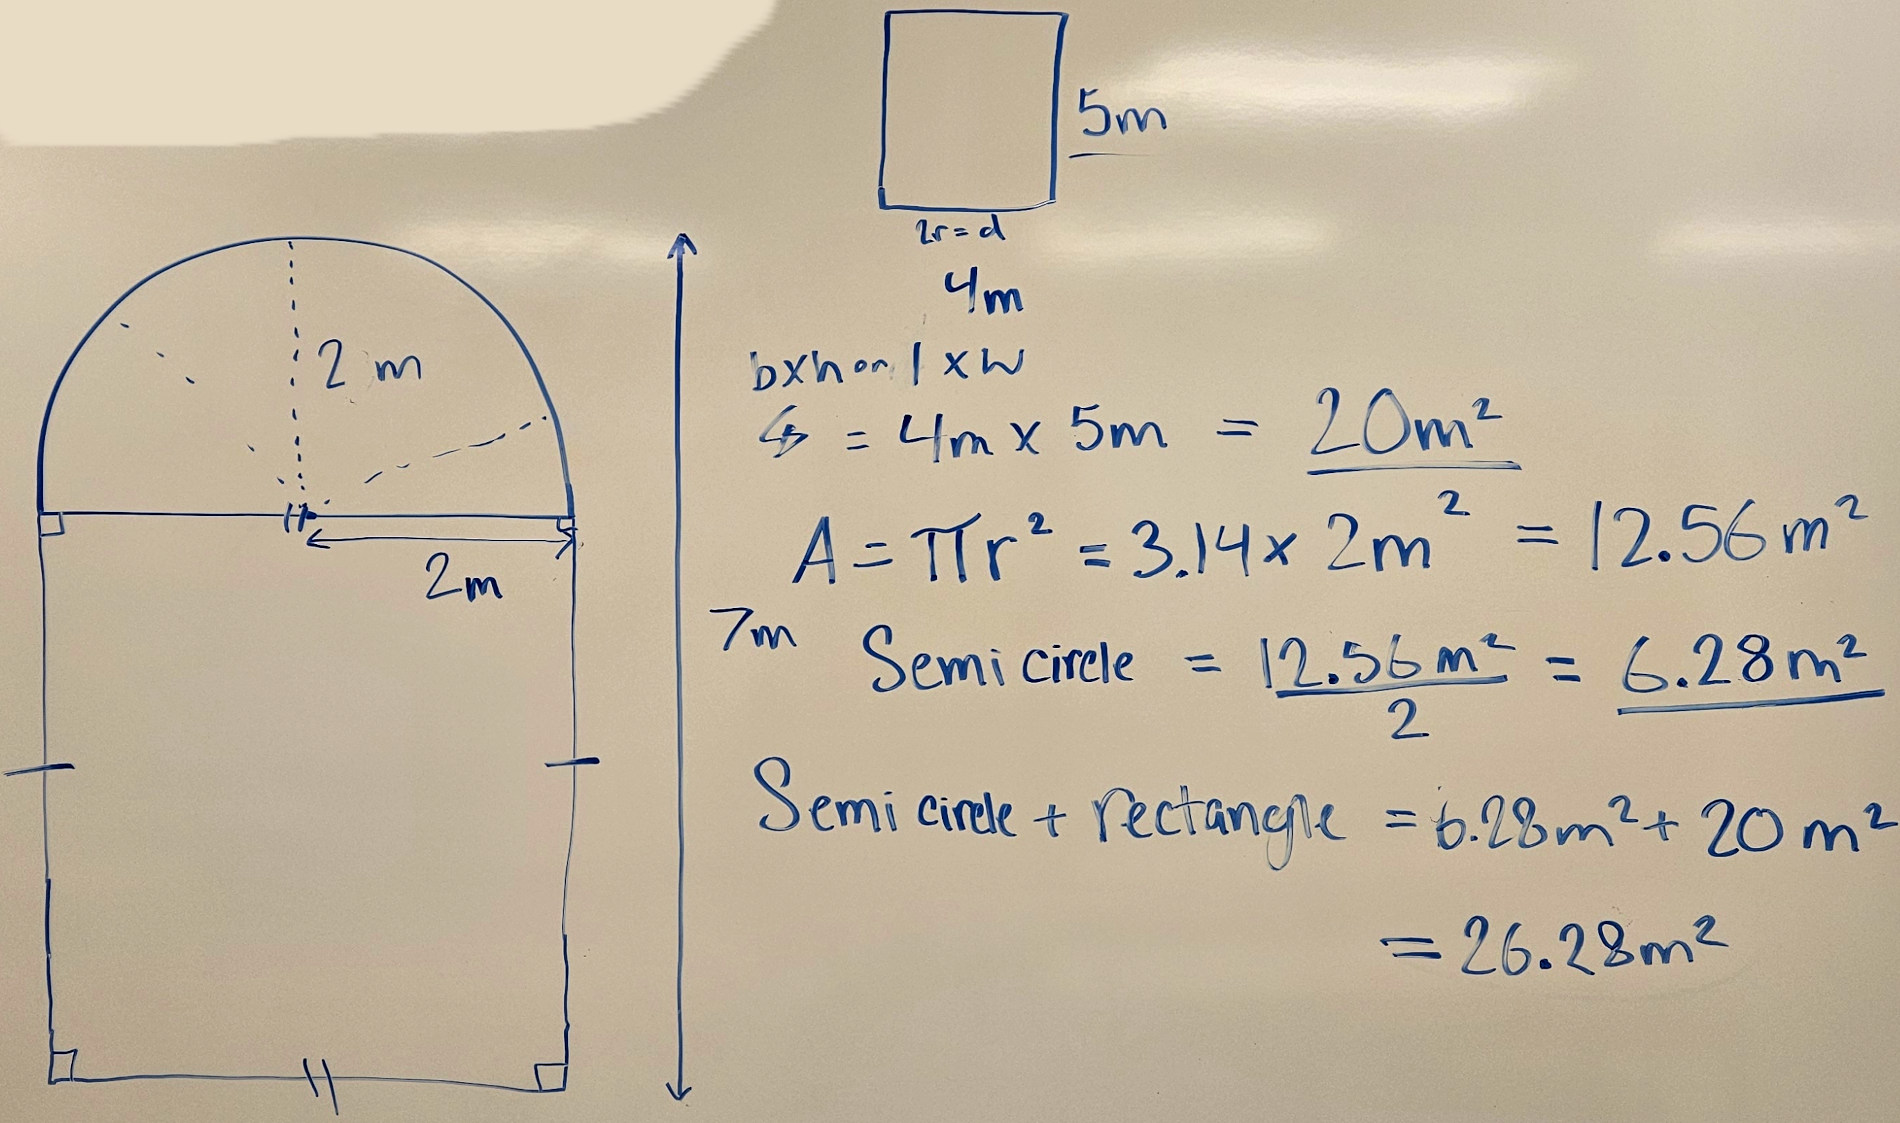 5m
2r = d
4m
2 m
2m
7m
bxh or l x w
= 4m x 5m = 20m²
A = πr² = 3.14 x 2m² = 12.56 m²
Semi circle = 12.56 m² / 2 = 6.28 m²
Semi circle + rectangle = 6.28 m² + 20 m²
= 26.28m²